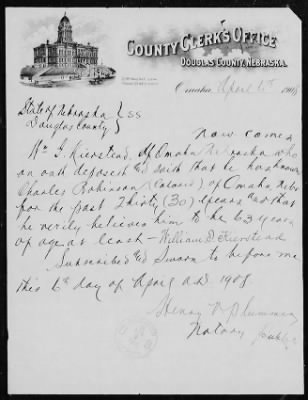 COUNTY CLERK'S OFFICE
DOUGLAS COUNTY, NEBRASKA.
Omaha, April 1st 1908
State of Nebraska } SS
Douglas County }
Now comes
Wm D. Kierstead, of Omaha Nebraska who
on oath deposeth and saith that he has known
Charles Robinson (Colored) of Omaha Nebr
for the past Thirty (30) years and that
he verily believes him to be 63 years
of age at least – William D. Kierstead
Subscribed and Sworn to before me
this 1st day of April A.D. 1908
Henry Plummer
Notary Public